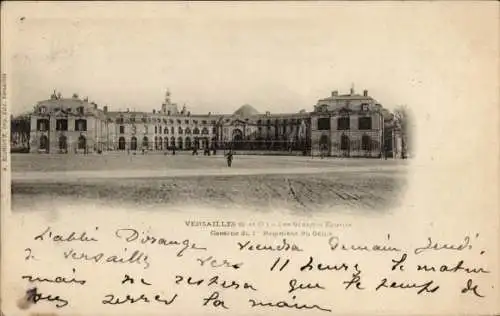 VERSAILLES (S. et O.) - Les Grandes Écuries
Caserne du 1er Régiment du Génie
L'abbé Dorange viendra demain jeudi
à Versailles vers 11 heures le matin
mais ne restera que le temps de
vous serrer la main